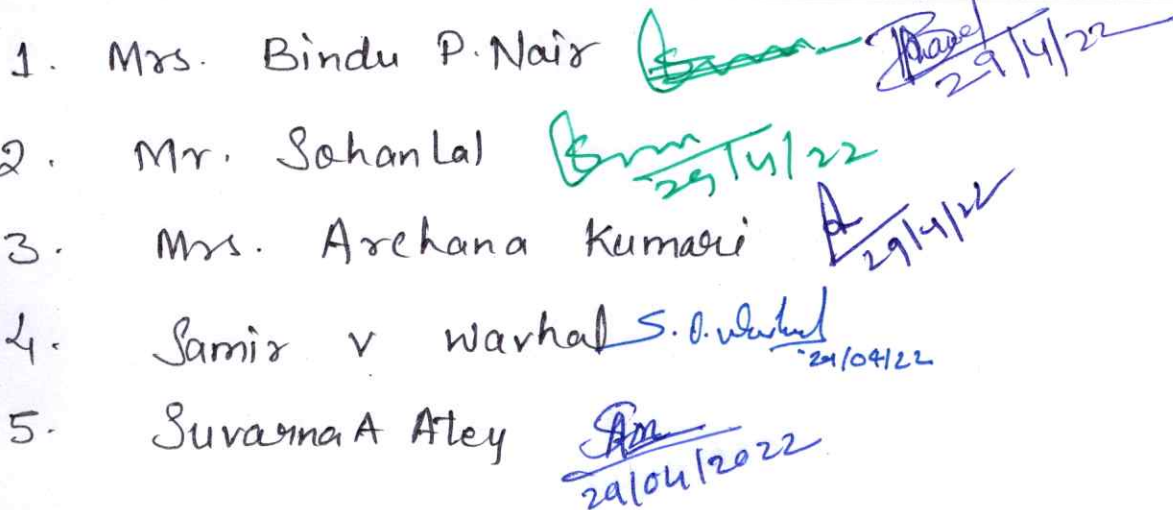 1. Mrs. Bindu P. Nair 29/4/22
2. Mr. Sohanlal 29/4/22
3. Mrs. Archana Kumari 29/4/22
4. Samir v warhal 29/04/22
5. Suvarna A Atey 29/04/2022